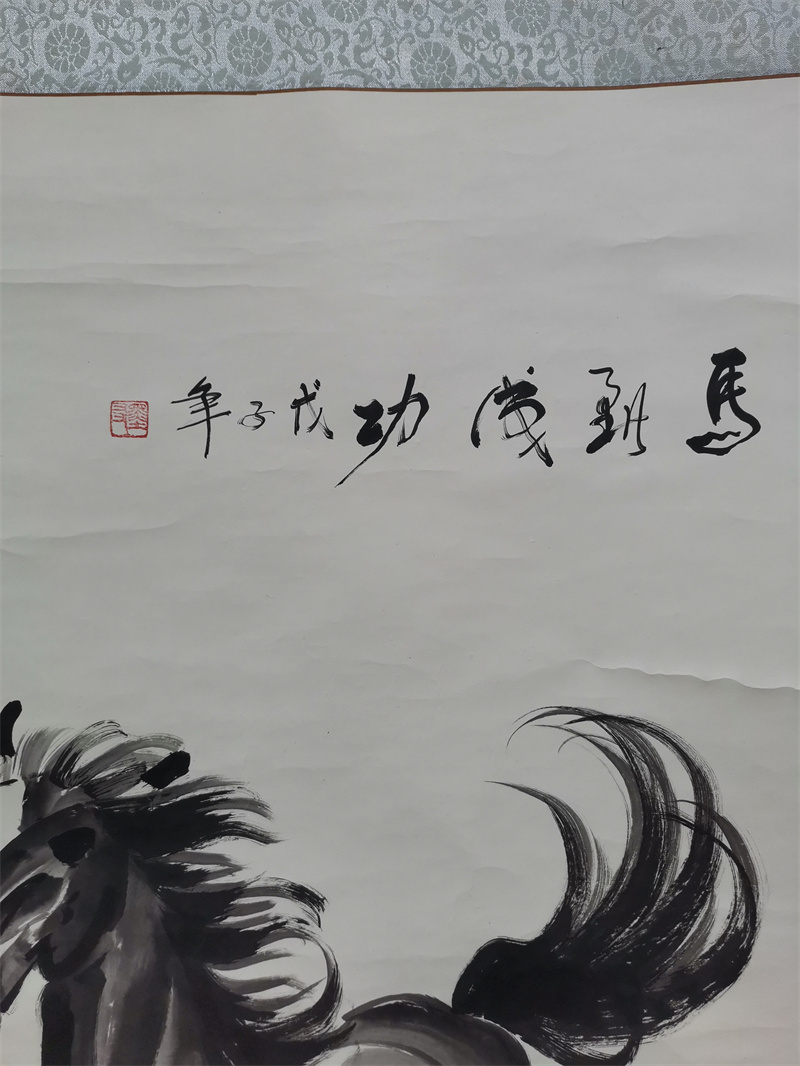 馬到成功戊子年